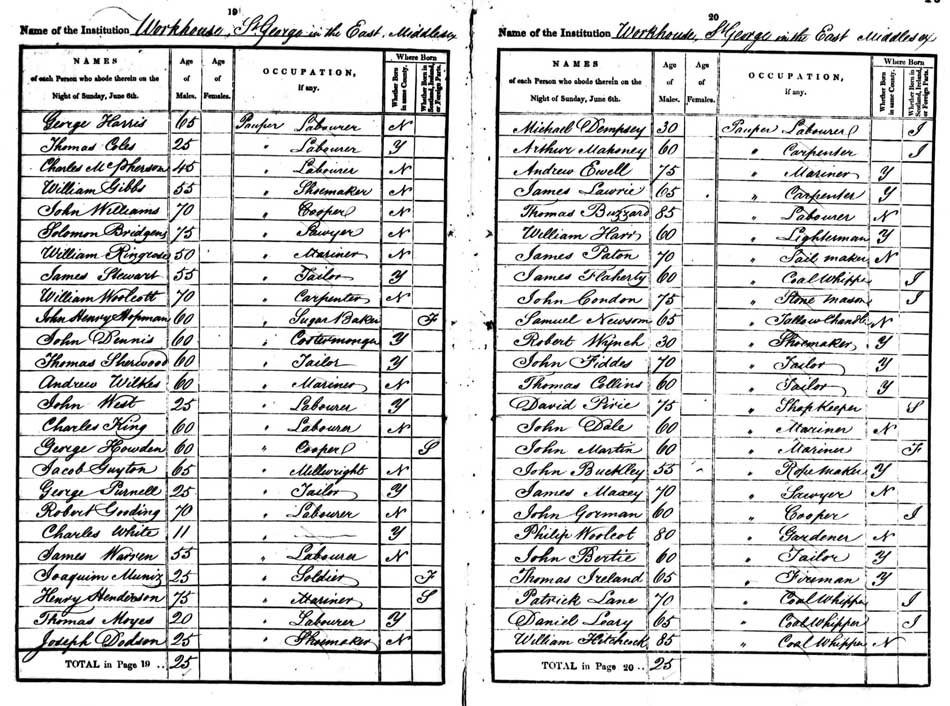 19
Name of the Institution Workhouse, St George in the East, Middlesex
NAMES of each Person who abode therein on the Night of Sunday, June 6th. Age of Males. Age of Females. OCCUPATION, if any. Where Born Whether Born in same County. Whether Born in Scotland, Ireland, or Foreign Parts.
George Harris 65 Pauper Labourer N
Thomas Coles 25 " Labourer Y
Charles McPherson 45 " Labourer N
William Gibbs 55 " Shoemaker N
John Williams 70 " Cooper N
Solomon Bridgens 75 " Sawyer N
William Ringrose 50 " Mariner N
James Stewart 55 " Tailor Y
William Woolcott 70 " Carpenter N
John Henry Hopman 60 " Sugar Baker F
John Dennis 60 " Costermonger Y
Thomas Sherwood 60 " Tailor Y
Andrew Wilkes 60 " Mariner N
John West 25 " Labourer Y
Charles King 60 " Labourer N
George Howden 60 " Cooper S
Jacob Guyton 65 " Millwright N
George Purnell 25 " Tailor Y
Robert Gooding 70 " Labourer N
Charles White 11 " Y
James Warren 55 " Labourer N
Joaquim Muniz 25 " Soldier F
Henry Henderson 75 " Mariner S
Thomas Moyes 20 " Labourer Y
Joseph Dodson 25 " Shoemaker N
TOTAL in Page 19 .. 25
20
Name of the Institution Workhouse, St George in the East Middlesex
NAMES of each Person who abode therein on the Night of Sunday, June 6th. Age of Males. Age of Females. OCCUPATION, if any. Where Born Whether Born in same County. Whether Born in Scotland, Ireland, or Foreign Parts.
Michael Dempsey 30 Pauper Labourer I
Arthur Mahoney 60 " Carpenter I
Andrew Ewell 75 " Mariner Y
James Lawrie 65 " Carpenter Y
Thomas Buzzard 85 " Labourer N
William Harr 60 " Lighterman Y
James Paton 70 " Sail maker N
James Flaherty 60 " Coal Whipper I
John Condon 75 " Stone mason I
Samuel Newsom 65 " Tallow Chandler N
Robert Wynch 30 " Shoemaker Y
John Fiddes 70 " Tailor Y
Thomas Collins 60 " Tailor Y
David Pirie 75 " Shop Keeper S
John Dale 60 " Mariner N
John Martin 60 " Mariner F
John Buckley 55 " Rope maker Y
James Maxey 70 " Sawyer N
John Gorman 60 " Cooper I
Philip Woolcot 80 " Gardener N
John Bertie 60 " Tailor Y
Thomas Ireland 65 " Fireman Y
Patrick Lane 70 " Coal Whipper I
Daniel Leary 65 " Coal Whipper I
William Hitchcock 85 " Coal Whipper N
TOTAL in Page 20 .. 25